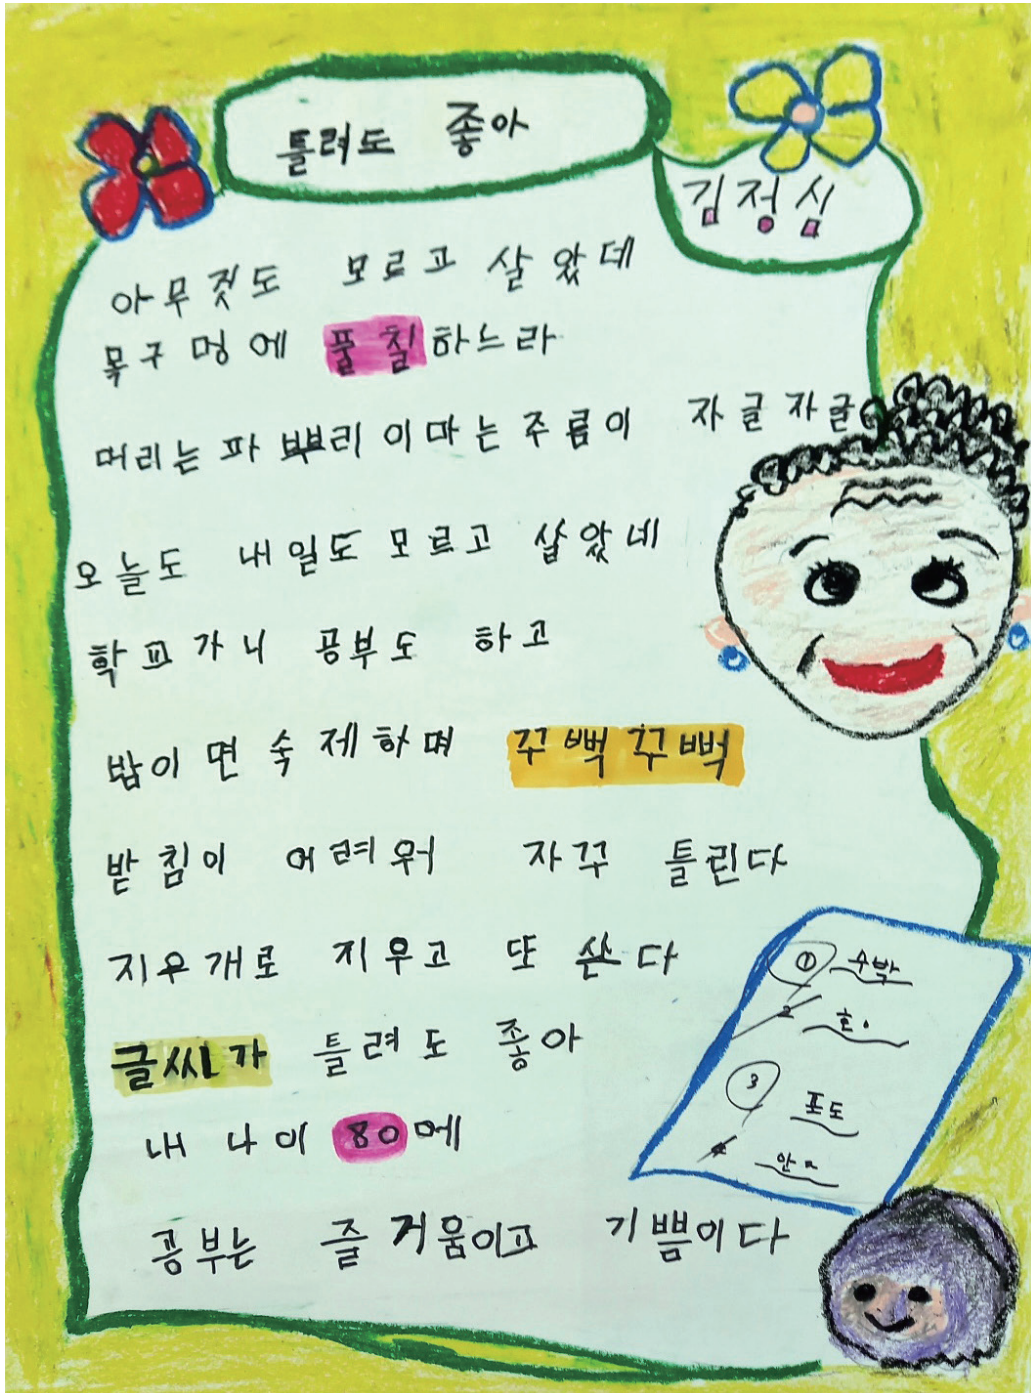 틀려도 좋아
김정심
아무것도 모르고 살았데
목구멍에 풀칠하느라
머리는 파뿌리 이마는 주름이 자글자글
오늘도 내일도 모르고 살았네
학교가니 공부도 하고
밤이면 숙제하며 꾸뻑꾸뻑
받침이 어려워 자꾸 틀린다
지우개로 지우고 또 쓴다
글씨가 틀려도 좋아
내 나이 80에
공부는 즐거움이고 기쁨이다
① 수박
2
3 포도
4